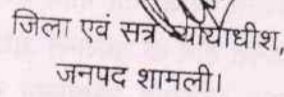 जिला एवं सत्र न्यायाधीश,
जनपद शामली।